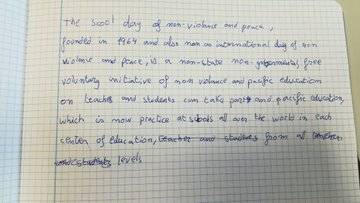 The scool day of non-violence and peace,
founded in 1964 and also non an international day of non
violence and peace, is a non-state non-governmental, free
voluntary initiative of non violance and pacific education
on teacher and students can take part and pacific education,
which is now practice at schools all over the world in each
center of education, teacher and students from al teacher
students levels